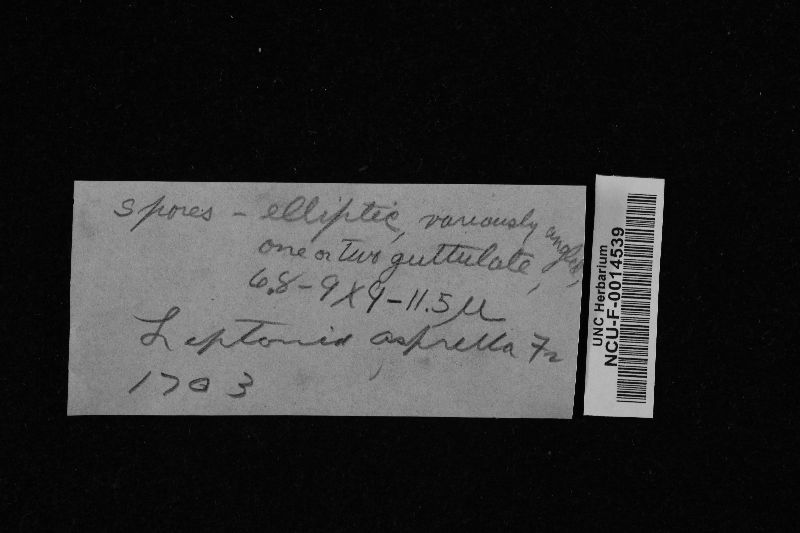 spores - elliptic, variously angled,
one or two guttulate,
6.8-9 X 9-11.5 µ
Leptonia asprella Fr
1703
UNC Herbarium
NCU-F-0014539